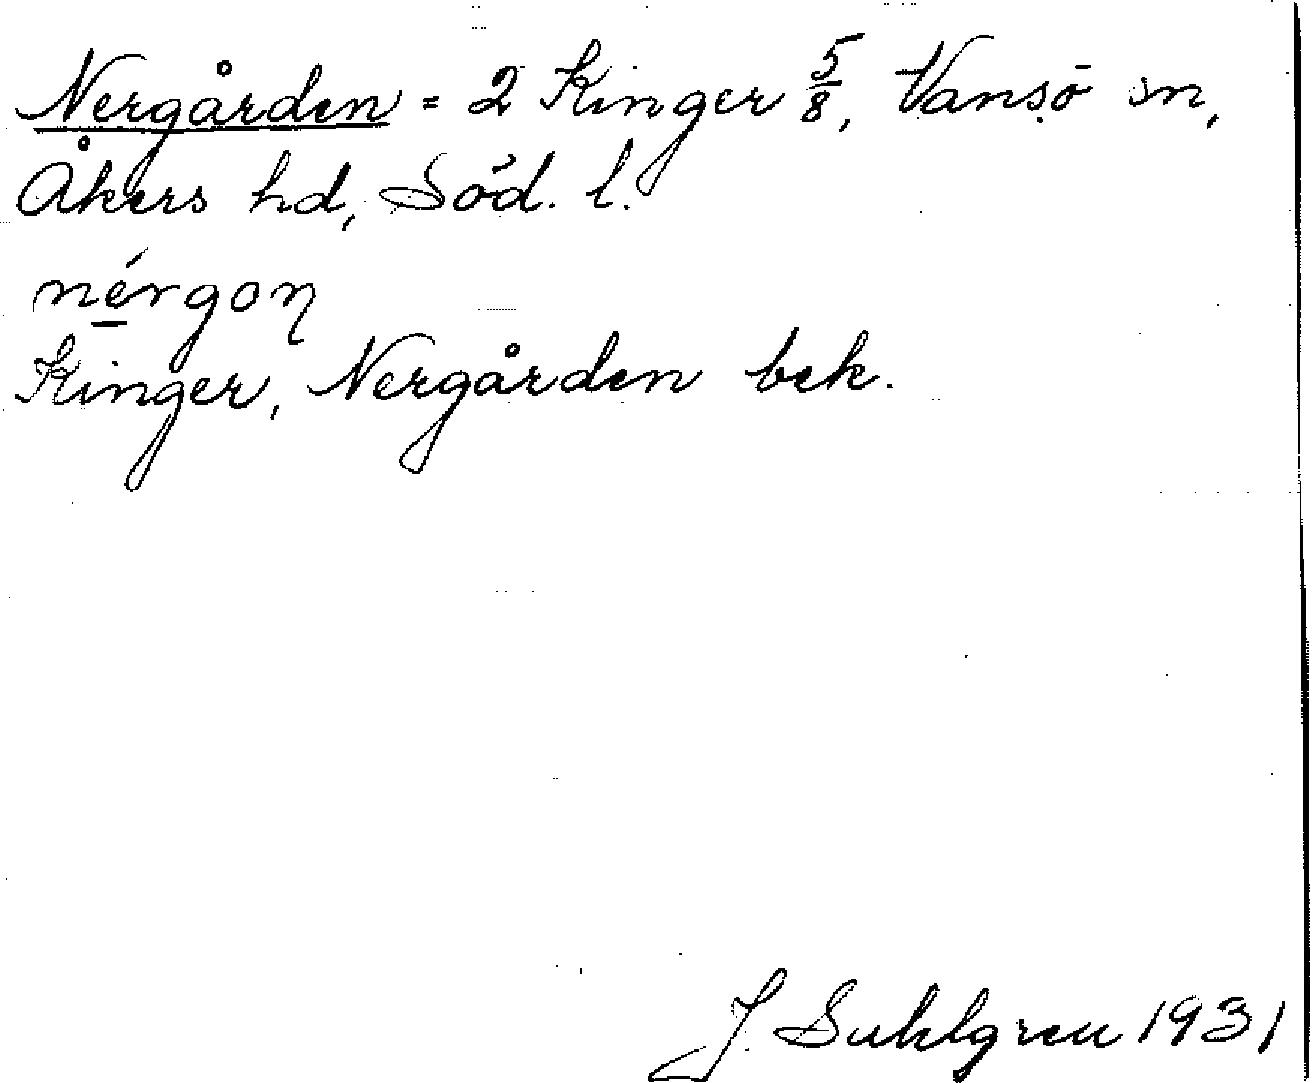 Nergården = 2 Kinger 5/8, Vansö sn,
Åkers hd, Söd. l.
nérgoŋ
Kinger, Nergården bek.
J. Suhlgren 1931